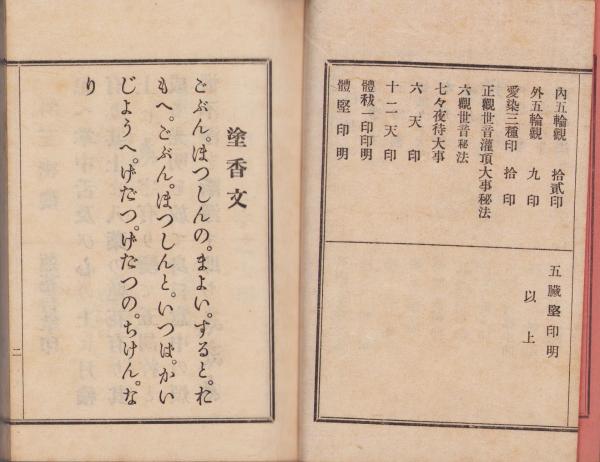 內五輪觀　拾貳印
外五輪觀　九印
愛染三種印　拾印
正觀世音灌頂大事秘法
六觀世音秘法
七々夜待大事
六天印
十二天印
體秡一印印明
體堅印明
五臟堅印明
以上
塗香文
ごぶん。ほつしんの。まよい。すると。れ
もへ。ごぶん。ほつしんと。いつは。かい
じようへ。げだつ。げだつの。ちけん。な
り
二